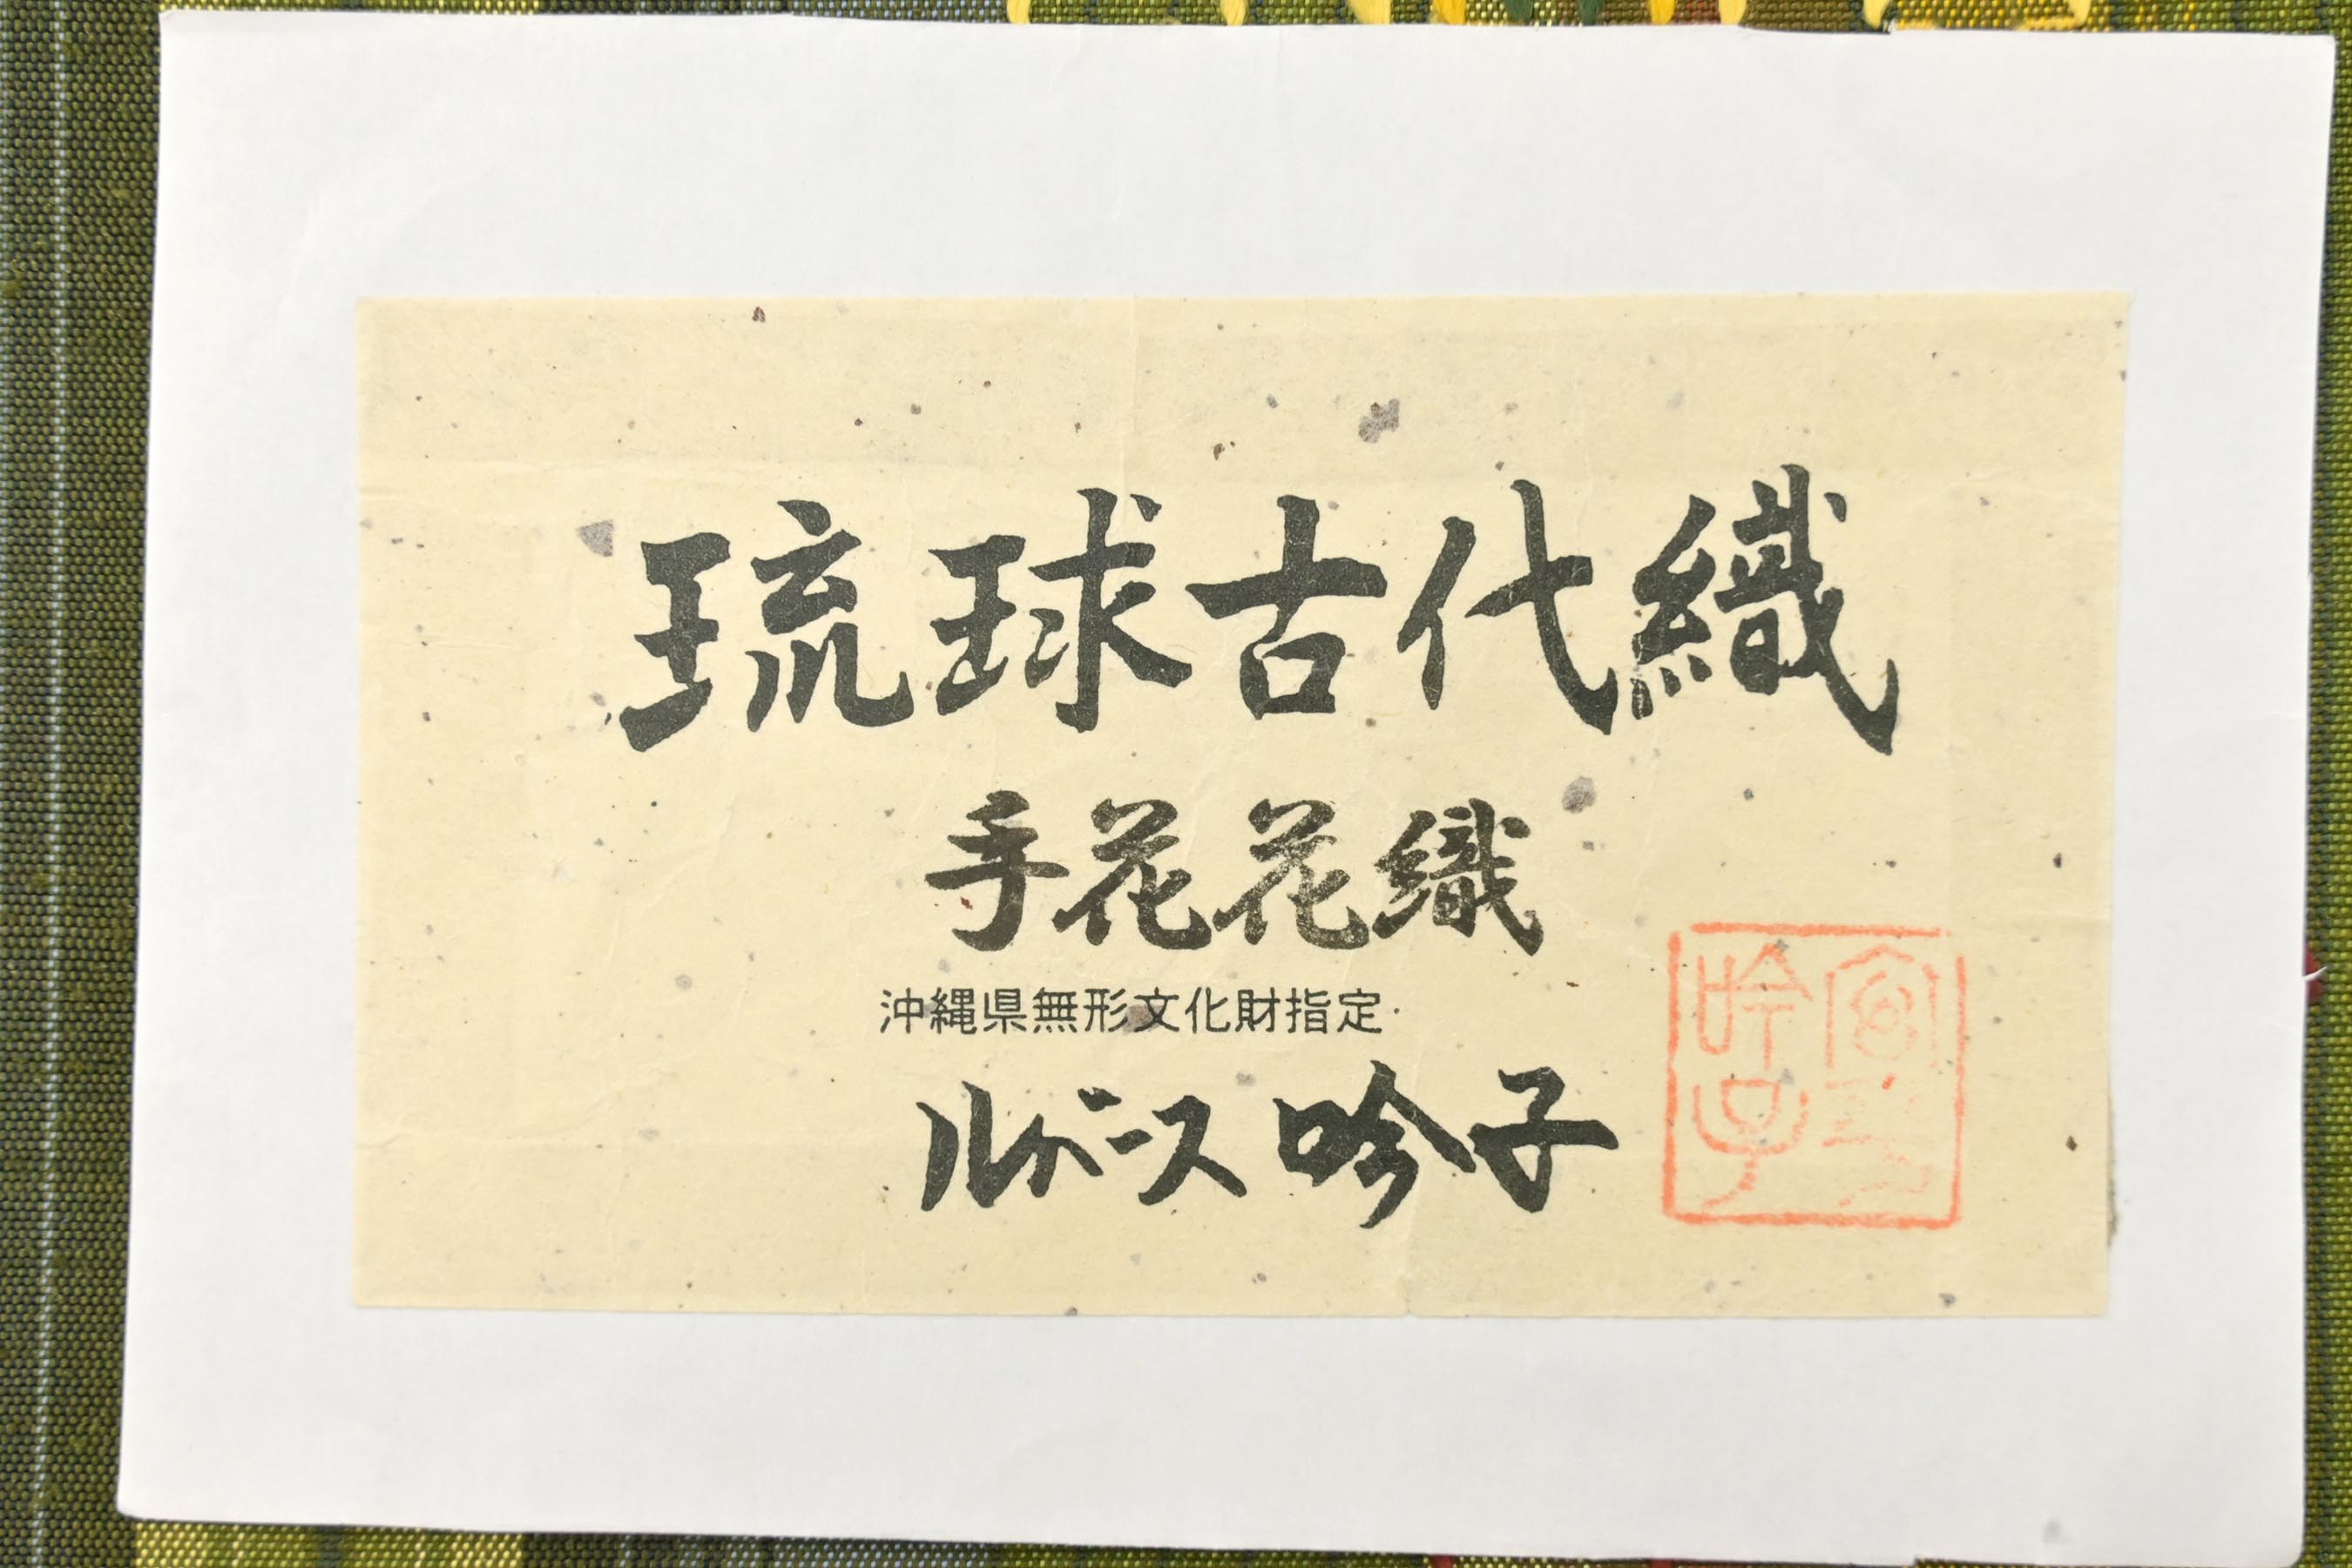 琉球古代織
手花花織
沖縄県無形文化財指定
ルバース吟子
吟子